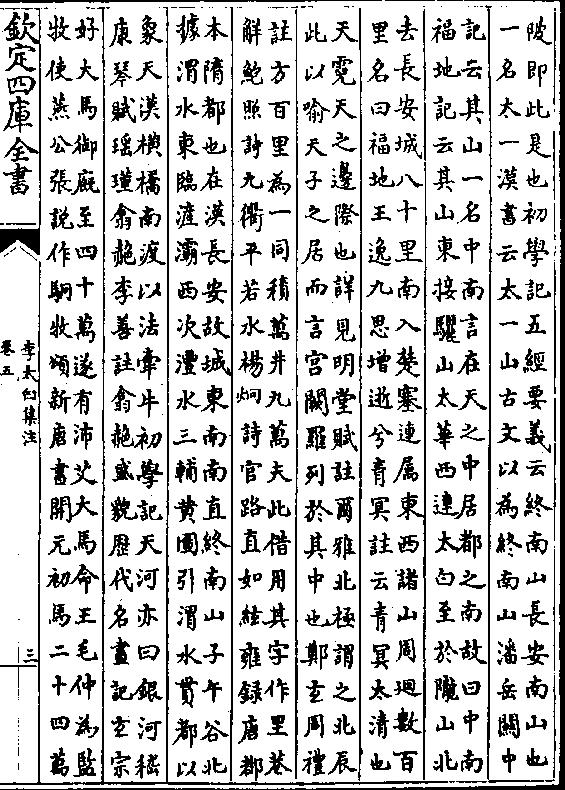 陂即此是也初學記五經要義云終南山長安南山也
一名太一漢書云太一山古文以為終南山潘岳闗中
記云其山一名中南言在天之中居都之南故曰中南
福地記云其山東接驪山太華西連太白至於隴山北
去長安城八十里南入楚塞連属東西諸山周廻數百
里名曰福地王逸九思增逝兮青冥註云青冥太清也
天霓天之邊際也詳見明堂賦註爾雅北極謂之北辰
此以喻天子之居而言宫闕羅列於其中也鄭玄周禮
註方百里為一同積萬井九萬夫此借用其字作里巷
解鮑照詩九衢平若水楊烱詩官路直如絃雍録唐都
本隋都也在漢長安故城東南南直終南山子午谷北
據渭水東臨滻灞西次灃水三輔黄圖引渭水貫都以
象天漢横橋南渡以法牽牛初學記天河亦曰銀河嵇
康琴賦瑶瑾翕赩李善註翕赩盛貌歴代名畫記玄宗
好大馬御廐至四十萬遂有沛艾大馬命王毛仲為監
牧使燕公張說作駉牧頌新唐書開元初馬二十四萬
欽定四庫全書
李太白集注
卷五
三